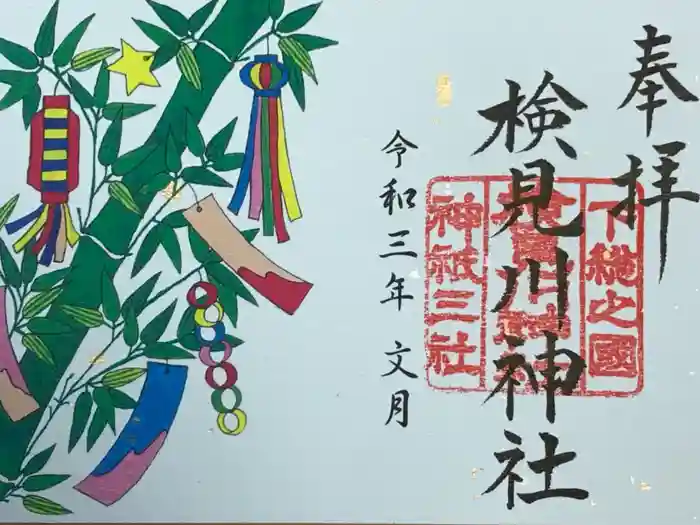 奉拝
検見川神社
下総之国
神祇三社
令和三年 文月